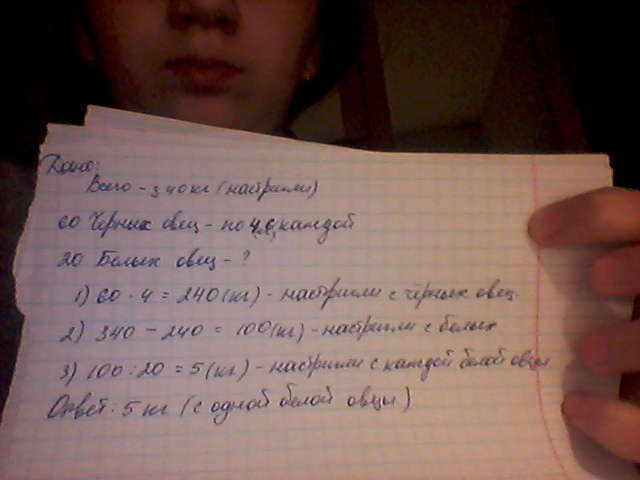 Дано:
Всего - 340 кг (настригли)
60 Чёрных овец - по 4 с каждой
20 Белых овец - ?
1) 60 · 4 = 240 (кг) - настригли с чёрных овец.
2) 340 - 240 = 100 (кг) - настригли с белых
3) 100 : 20 = 5 (кг) - настригли с каждой белой овцы
Ответ: 5 кг (с одной белой овцы)